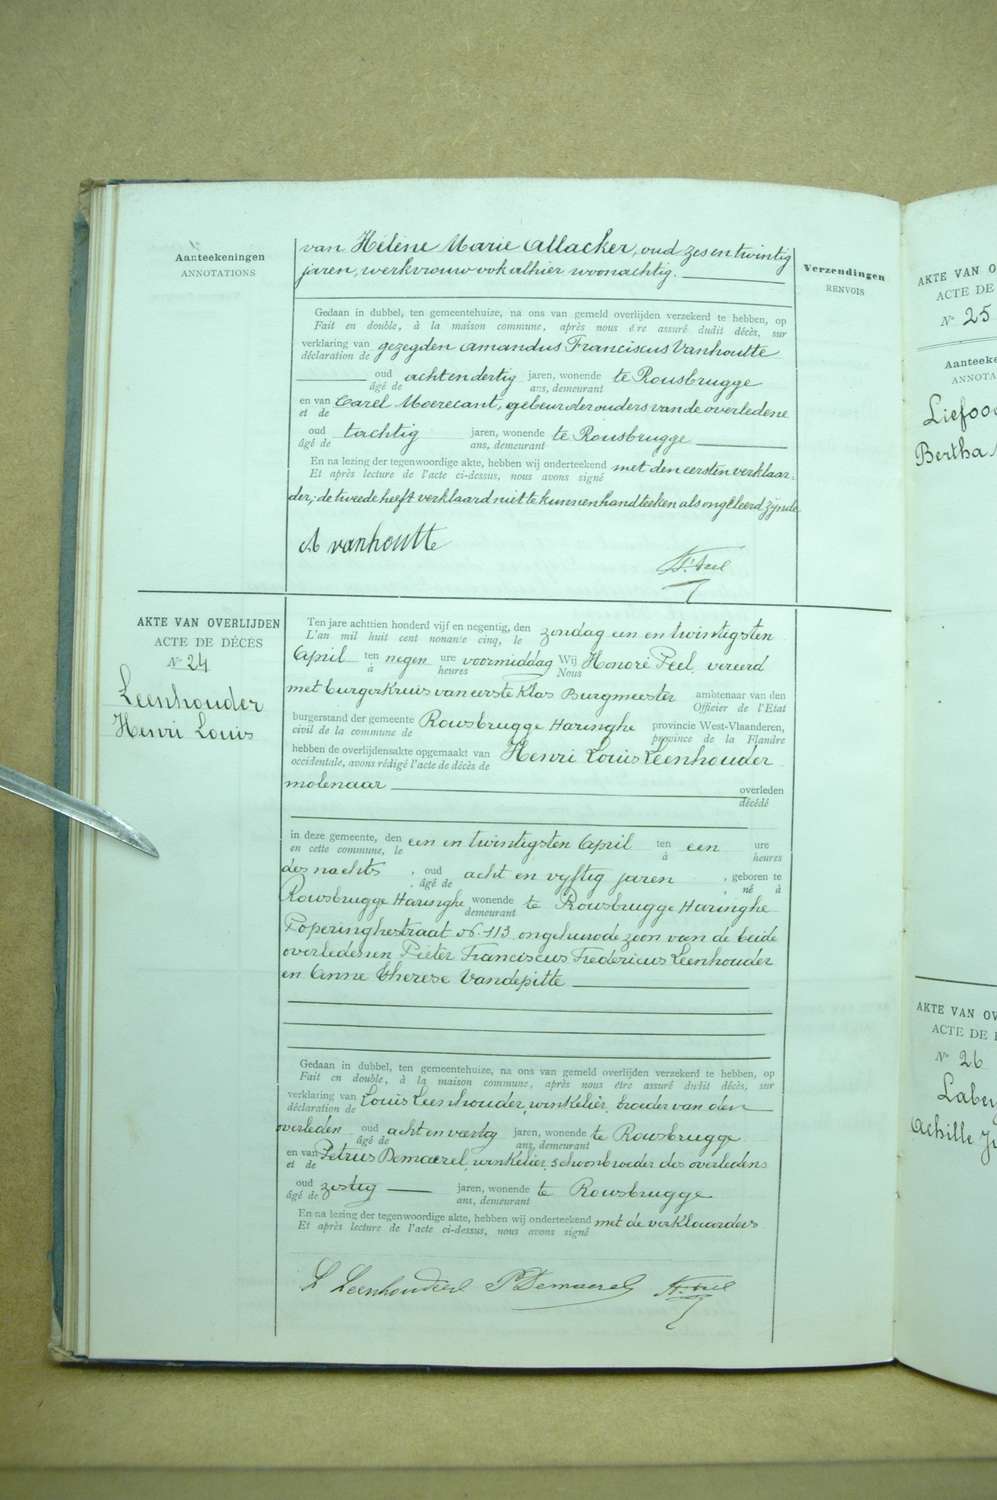 Aanteekeningen
ANNOTATIONS
van Hélène Marie Allacker, oud zes en twintig
jaren, werkvrouw ook alhier woonachtig.
Verzendingen
RENVOIS
Gedaan in dubbel, ten gemeentehuize, na ons van gemeld overlijden verzekerd te hebben, op
Fait en double, à la maison commune, après nous être assuré dudit décès, sur
verklaring van gezegden Amandus Franciscus Vanhoutte
déclaration de
oud achtendertig jaren, wonende te Rousbrugge
âgé de ans, demeurant
en van Carel Moerecant, gebuur der ouders van de overledene
et de
oud tachtig jaren, wonende te Rousbrugge
âgé de ans, demeurant
En na lezing der tegenwoordige akte, hebben wij onderteekend met den eersten verklaar-
Et après lecture de l'acte ci-dessus, nous avons signé
der; de tweede heeft verklaard niet te kunnen handteeken als ongeleerd zijnde
A vanhoutte
AKTE VAN OVERLIJDEN
ACTE DE DÉCÈS
N° 24
Leenhouder
Henri Louis
Ten jare achttien honderd vijf en negentig, den zondag een en twintigsten
L'an mil huit cent nonante cinq, le
April ten negen ure voormiddag Wij Honoré Peel, vereerd
à heures Nous
met burgerkruis van eerste klas Burgmeester ambtenaar van den
Officier de l'Etat
burgerstand der gemeente Rousbrugge Haringhe provincie West-Vlaanderen,
civil de la commune de province de la Flandre
hebben de overlijdensakte opgemaakt van Henri Louis Leenhouder
occidentale, avons rédigé l'acte de décès de
molenaar overleden
décédé
in deze gemeente, den een en twintigsten April ten een ure
en cette commune, le à heures
des nachts, oud acht en vyftig jaren, geboren te
âgé de né à
Rousbrugge Haringhe wonende te Rousbrugge Haringhe
demeurant
Poperinghestraat N. 113 ongehuwde zoon van de beide
overledenen Pieter Franciscus Fredericus Leenhouder
en Anne Therese Vandepitte
Gedaan in dubbel, ten gemeentehuize, na ons van gemeld overlijden verzekerd te hebben, op
Fait en double, à la maison commune, après nous être assuré dudit décès, sur
verklaring van Louis Leenhouder, winkelier, broeder van den
déclaration de
overleden oud acht en veertig jaren, wonende te Rousbrugge
âgé de ans, demeurant
en van Petrus Demaerel, winkelier, schoonbroeder des overledens
et de
oud zestig jaren, wonende te Rousbrugge
âgé de ans, demeurant
En na lezing der tegenwoordige akte, hebben wij onderteekend met de verklaarders
Et après lecture de l'acte ci-dessus, nous avons signé
L Leenhouder P Demaerel
AKTE VAN O
ACTE DE
N° 25
Aanteeke
ANNOTA
Liefoo
Bertha
AKTE VAN OV
ACTE DE
N° 26
Labey
Achille Ju